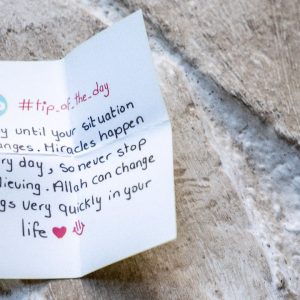 #tip_of_the_day
y until your situation
anges. Miracles happen
ry day, so never stop
lieving. Allah can change
gs very quickly in your
life ♥